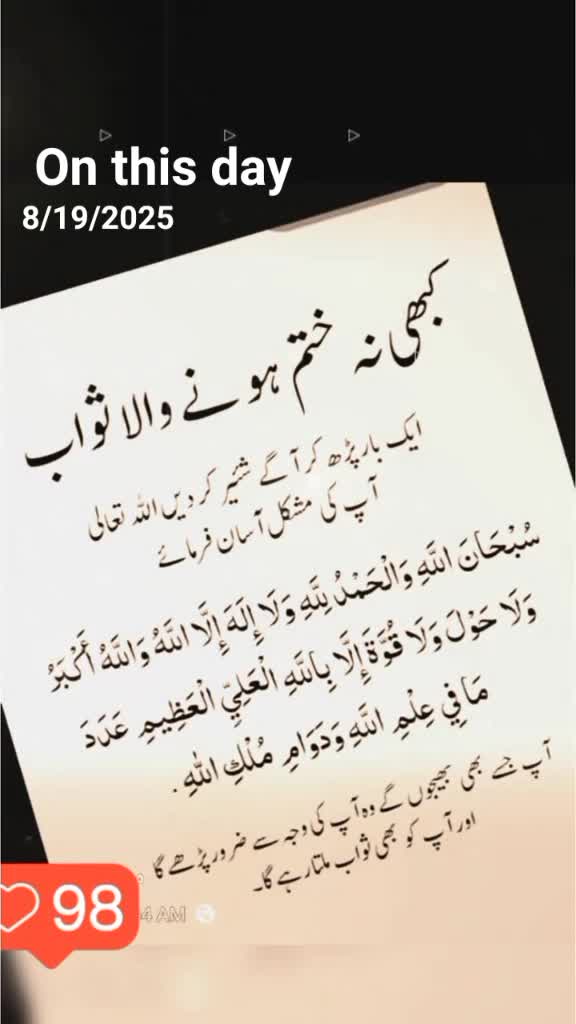 On this day
8/19/2025
کبھی نہ ختم ہونے والا ثواب
ایک بار پڑھ کر آگے شئیر کر دیں اللہ تعالی
آپ کی مشکل آسان فرمائے
سُبْحَانَ اللَّهِ وَالْحَمْدُ لِلَّهِ وَلَا إِلَهَ إِلَّا اللَّهُ وَاللَّهُ أَكْبَرُ
وَلَا حَوْلَ وَلَا قُوَّةَ إِلَّا بِاللَّهِ الْعَلِيِّ الْعَظِيمِ عَدَدَ
مَا فِي عِلْمِ اللَّهِ وَدَوَامِ مُلْكِ اللهِ.
آپ جسے بھی بھیجوں گے وہ آپ کی وجہ سے ضرور پڑھے گا
اور آپ کو بھی ثواب ملتا رہے گا۔
4 AM
98